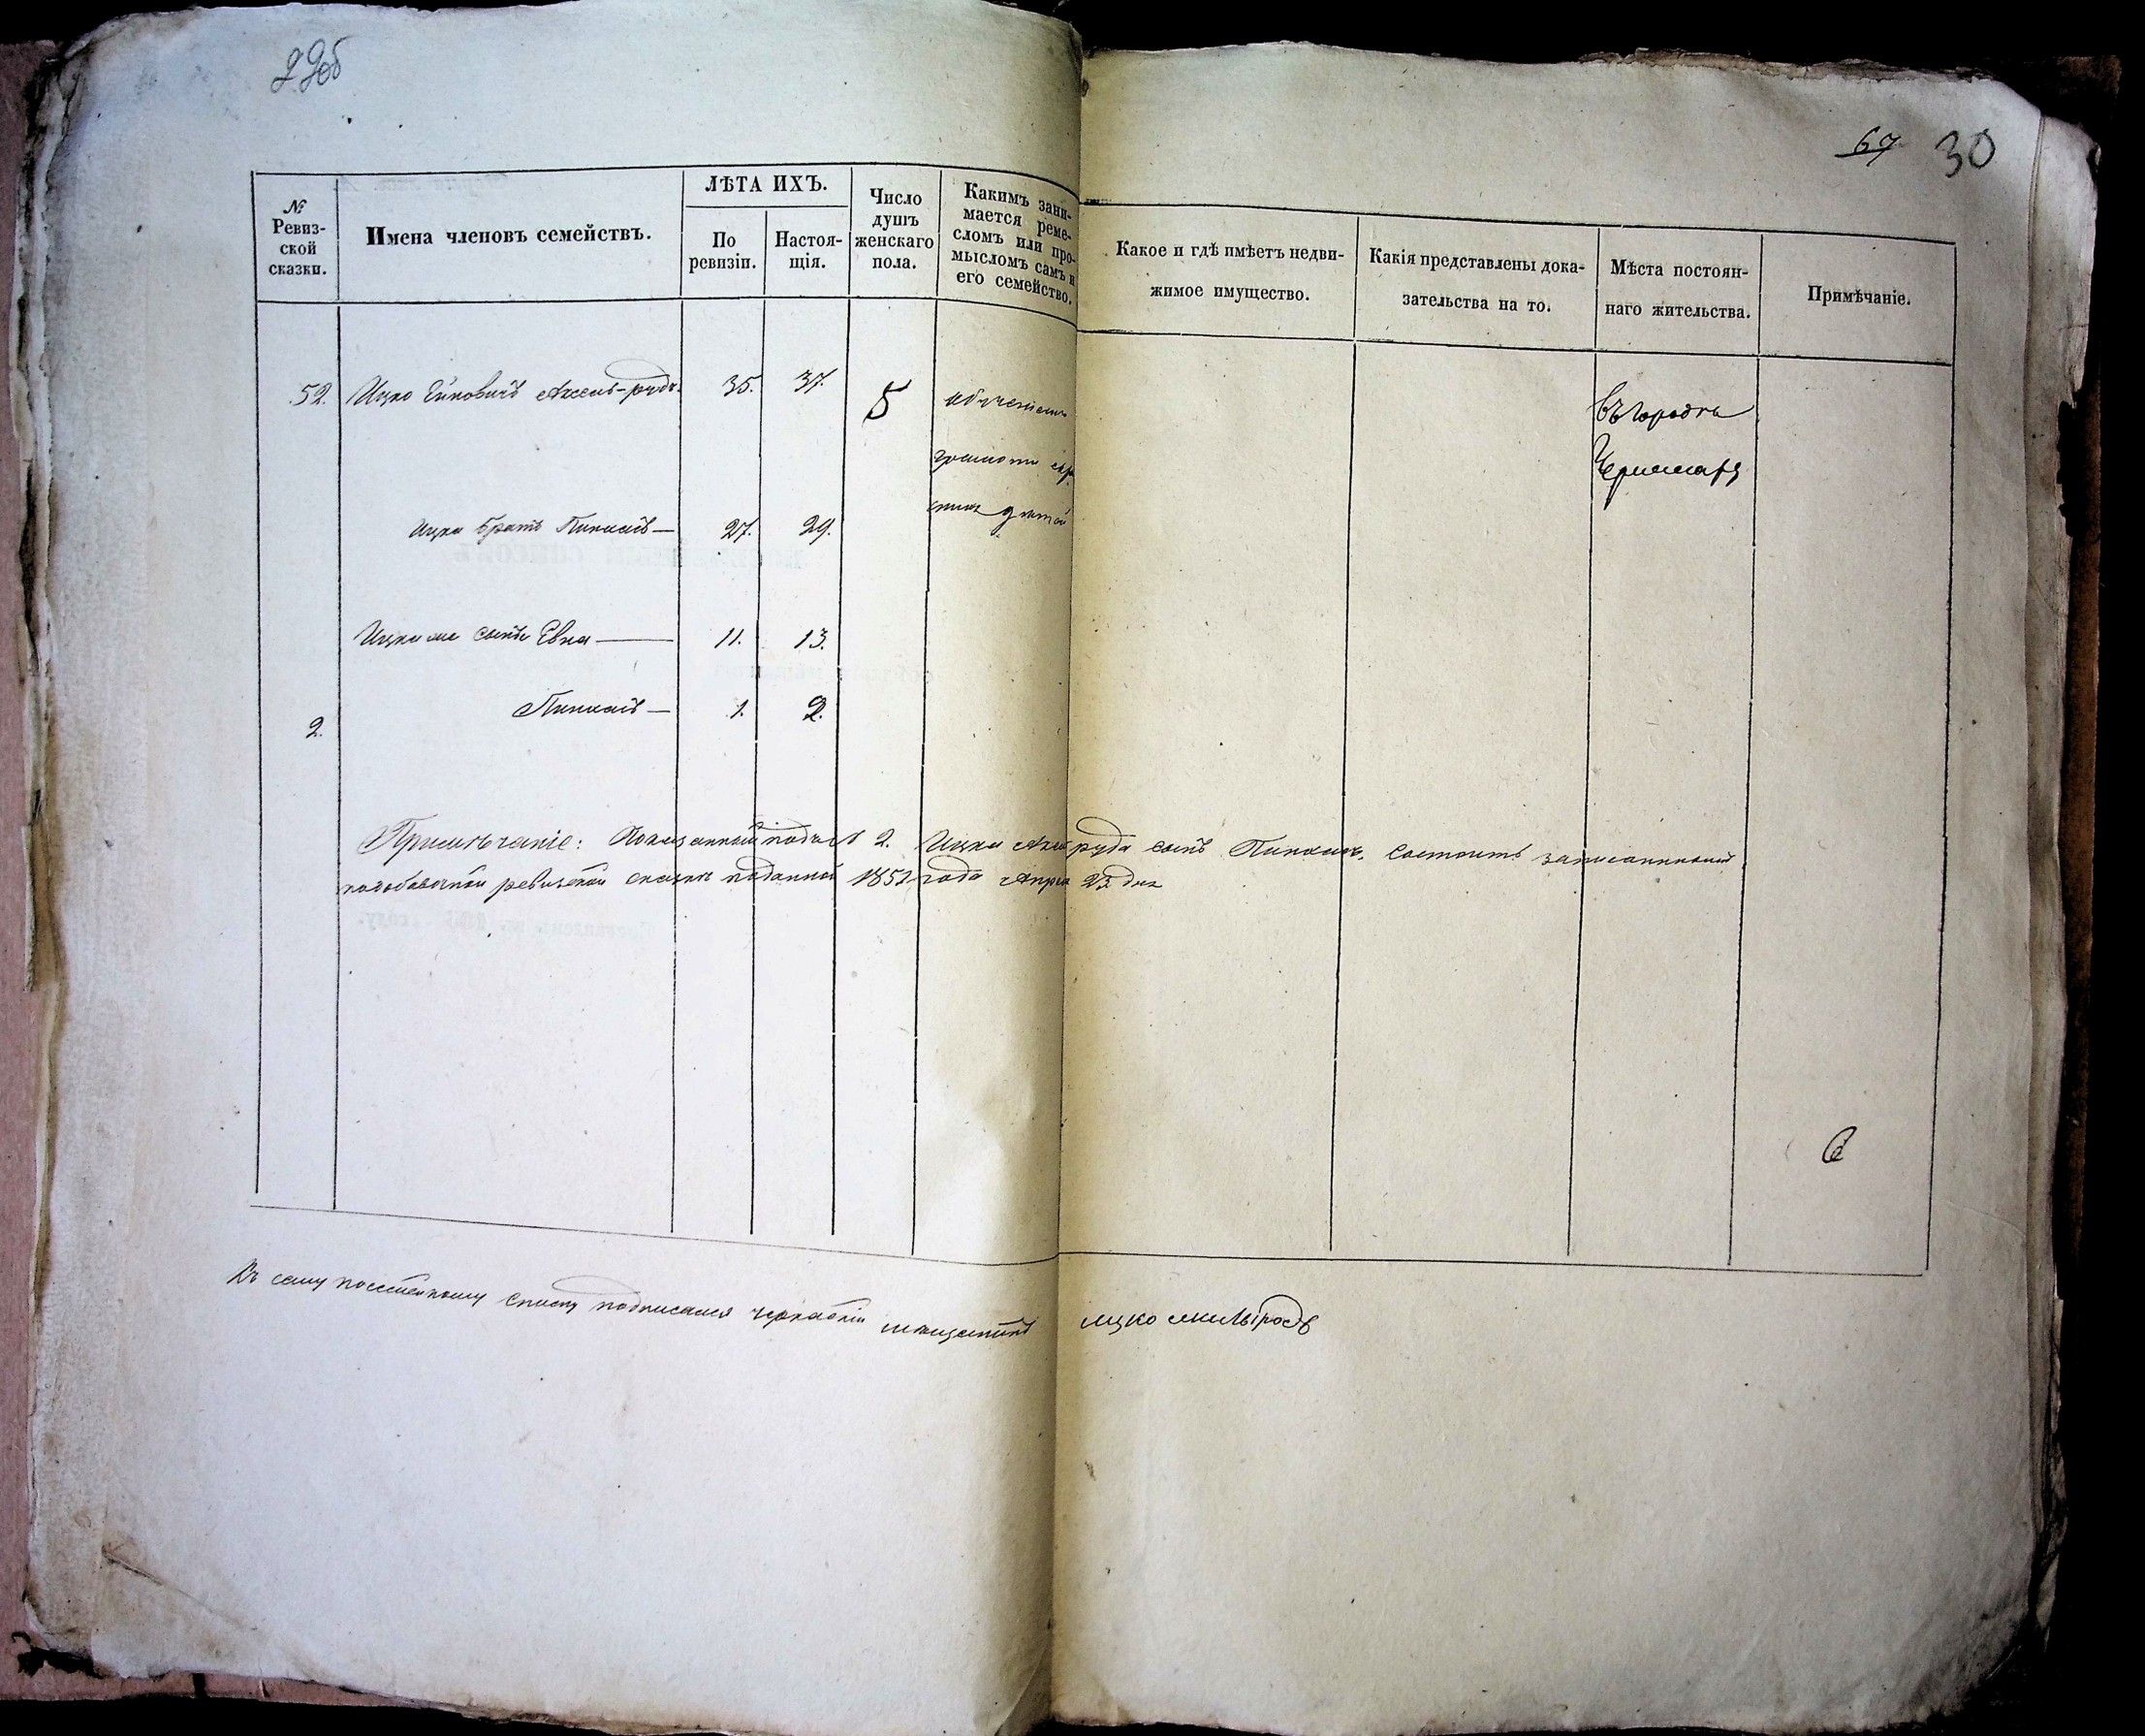 29об
67 30
№ Ревиз-
ской
сказки.
Имена членовъ семействъ.
ЛѢТА ИХЪ.
По
ревизіи.
Настоя-
щія.
Число
душъ
женскаго
пола.
Какимъ зани-
мается реме-
сломъ или про-
мысломъ самъ и
его семейство.
Какое и гдѣ имѣетъ недви-
жимое имущество.
Какія представлены дока-
зательства на то.
Мѣста постоян-
наго жительства.
Примѣчаніе.
52. Ицко 35. 37. 5 въ городѣ
грамоти
дѣтей
Ицка братъ Пинхасъ — 27. 29.
Ицки же сынъ Евна — 11. 13.
Пинхасъ — 1. 2.
2.
Примѣчаніе: Показанный подъ № 2. Ицки сынъ Пинхасъ, состоитъ записаннымъ
ревизской сказкѣ поданной 1851 года Апрѣ 23 дня
Къ сему посемейному списку подписался черкаскій мещанинъ ицко